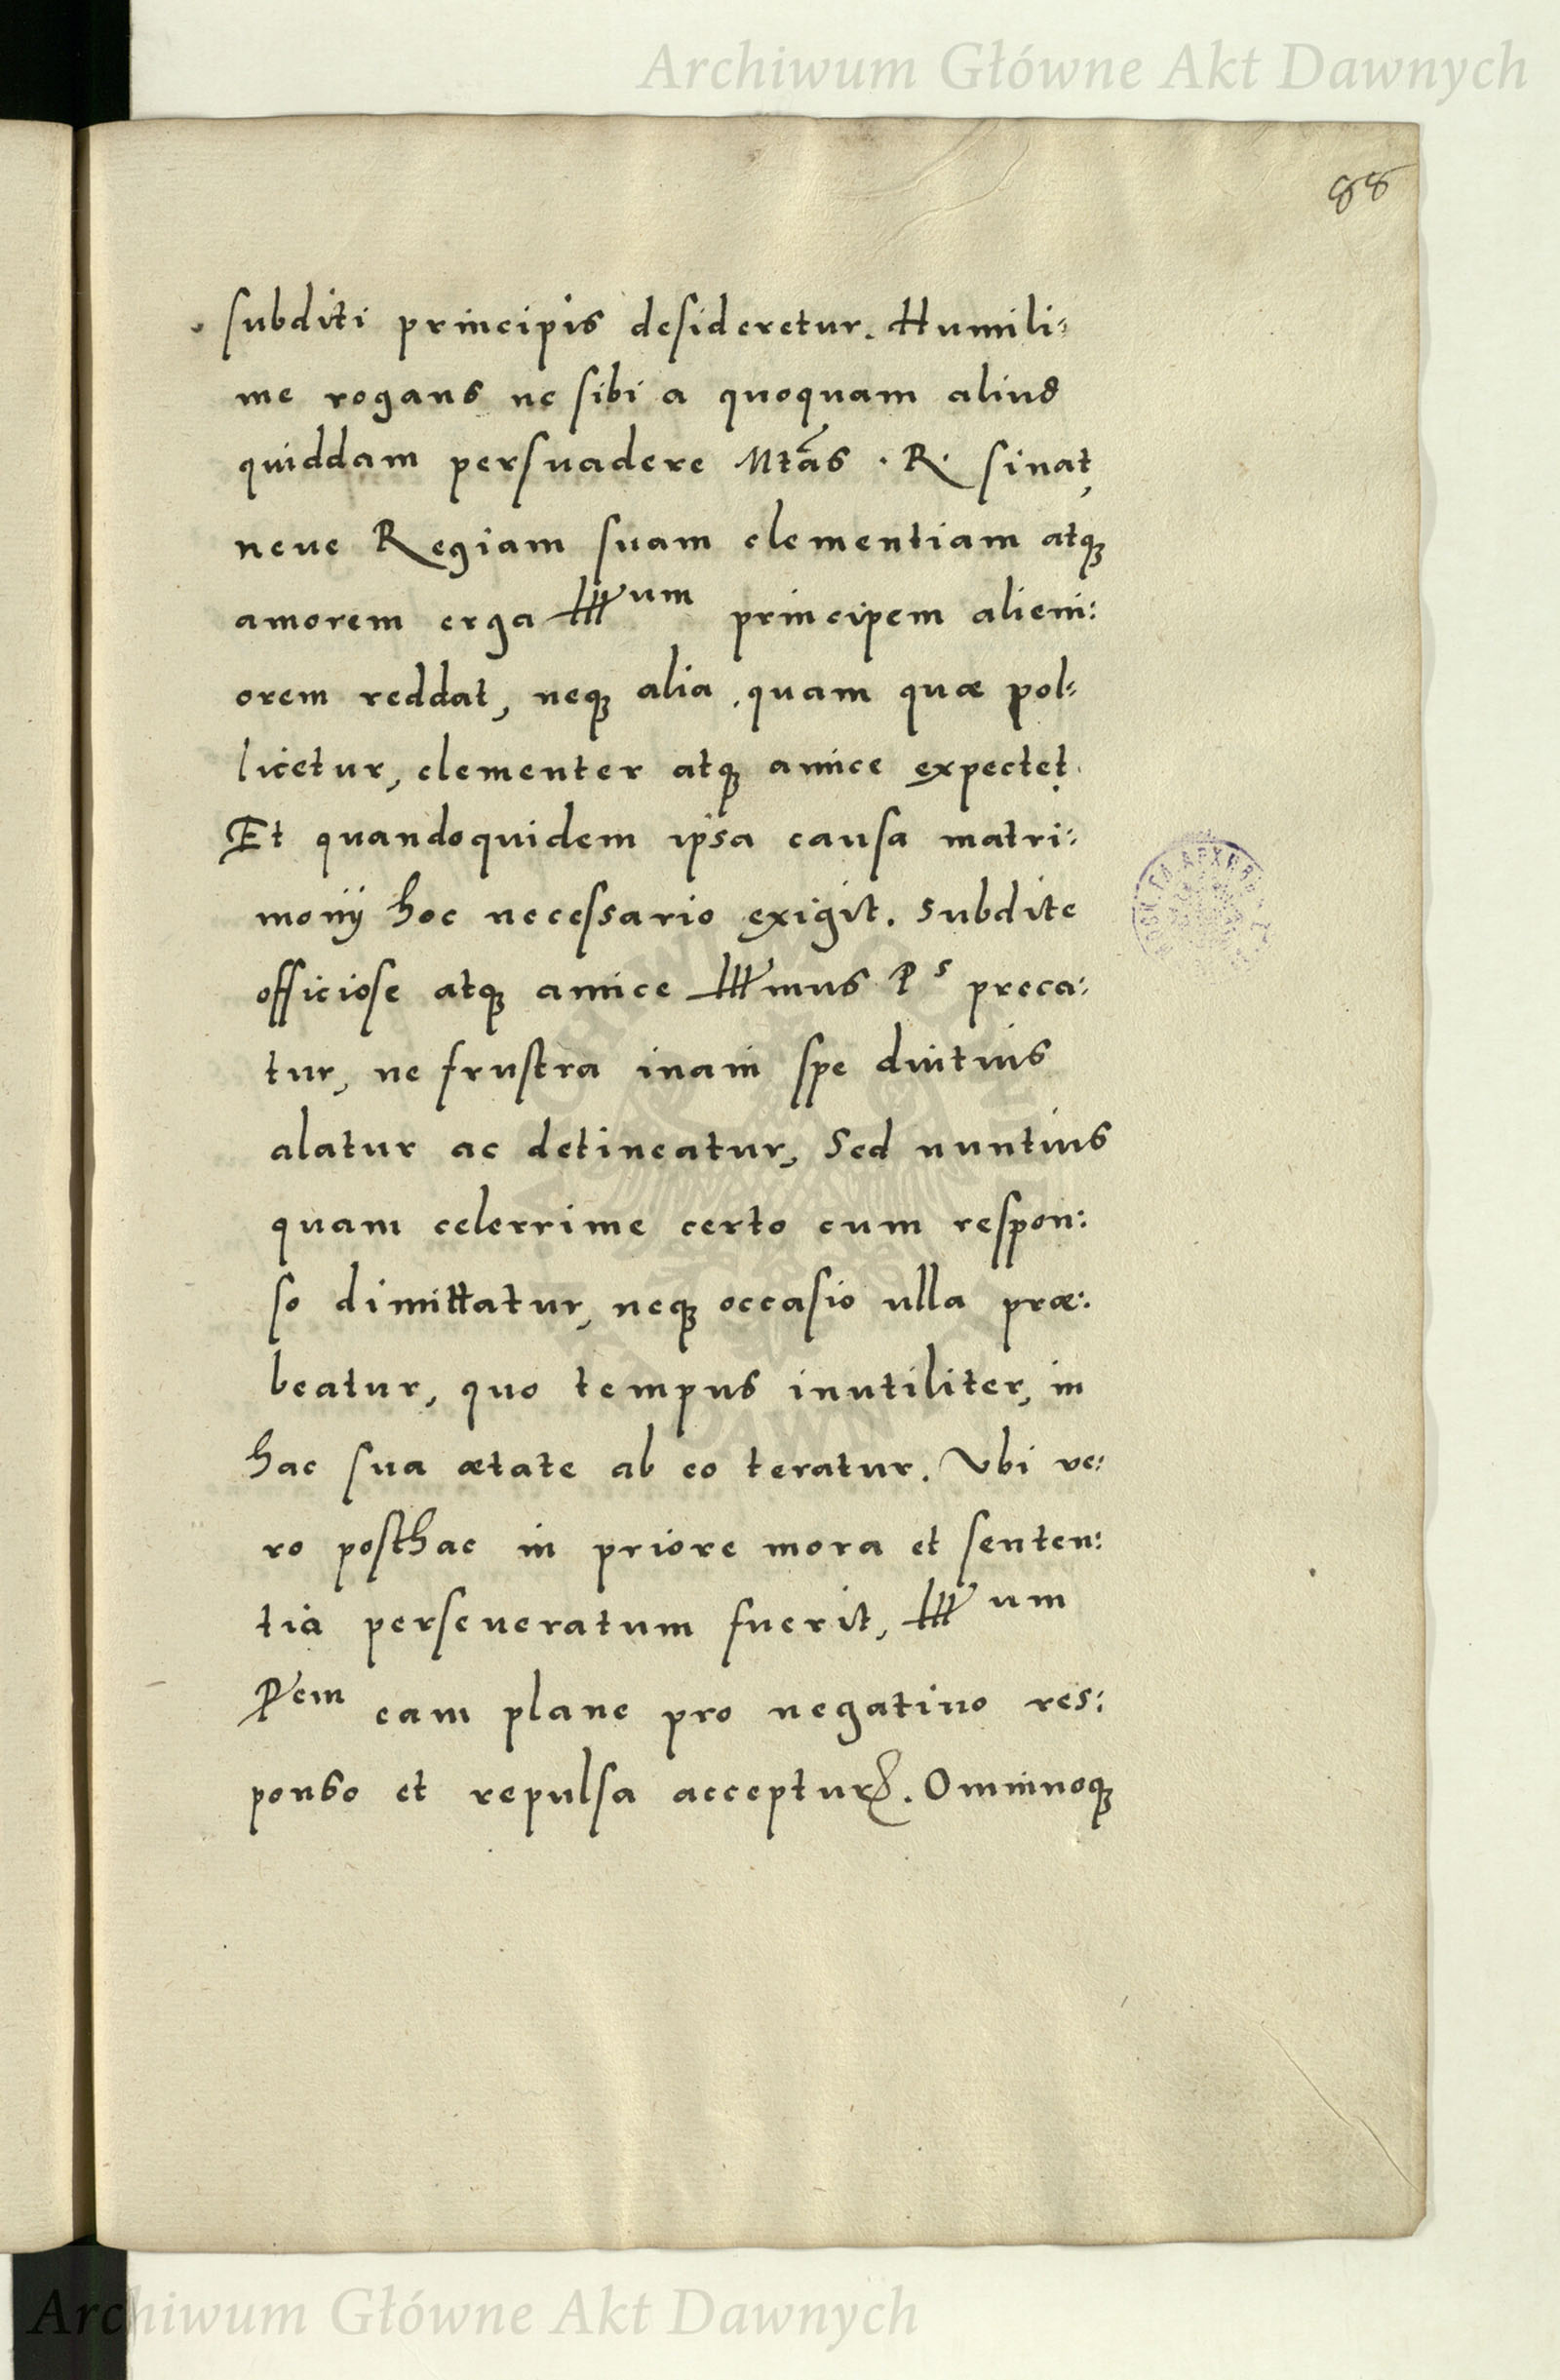 Archiwum Główne Akt Dawnych
88
subditi principis desideretur. Humili:
me rogans ne sibi a quoquam aliud
quiddam persuadere Mtas . R. sinat,
neue Regiam suam clementiam atq
amorem erga Ill um principem alieni:
orem reddat, neq alia, quam quæ pol:
licetur, clementer atq amice expectet.
Et quandoquidem ipsa causa matri:
monij hoc necessario exigit. Subdite
officiose atq amice Illmus P s preca:
tur, ne frustra inani spe diutius
alatur ac detineatur, Sed nuntius
quam celerrime certo cum respon:
so dimittatur, neq occasio ulla præ:
beatur, quo tempus inutiliter, in
hac sua ætate ab eo teratur. Vbi ve:
ro posthac in priore mora et senten:
tia perseueratum fuerit, Ill um
P em eam plane pro negatiuo res:
ponso et repulsa accептur. Omninoq
Archiwum Główne Akt Dawnych